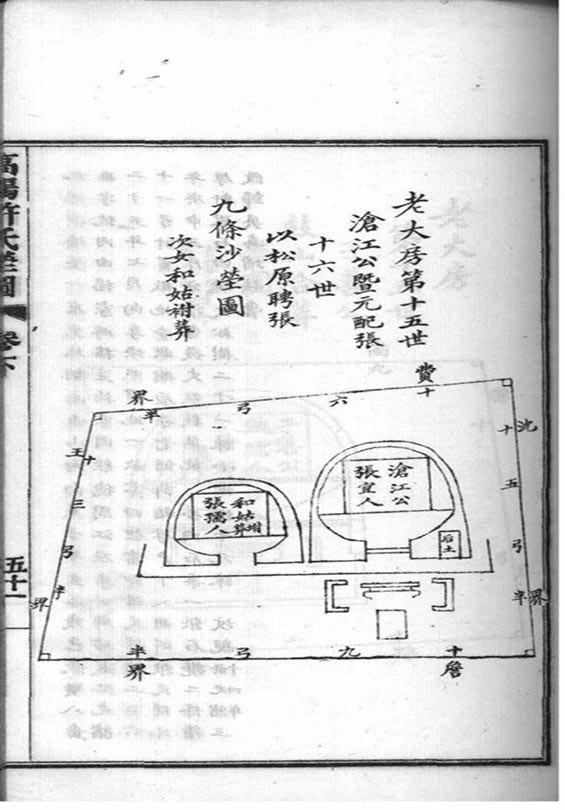 老大房第十五世
滄江公暨元配張
十六世
以松原聘張
九條沙塋圖
次女和姑祔葬
費十六弓半界
沈十五弓半界
王十三弓半界
詹十九弓半界
滄江公
張宜人
后土
和姑祔葬
張孺人
高陽許氏塋圖
卷下
五十一